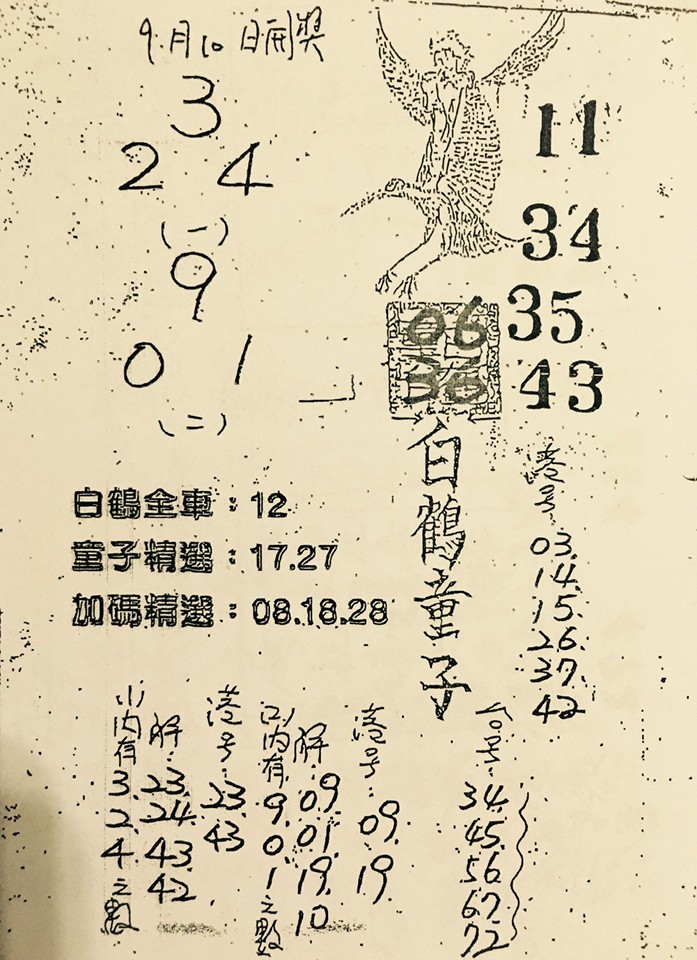 9月10日開獎
3
2 4
(一)
9
0 1
(二)
11
34
35
43
06
36
白鶴童子
白鶴全車：12
童子精選：17.27
加碼精選：08.18.28
港号：
03.
14.
15.
26.
37.
42
内有
3.
2.
4
之數
解：
23.
24.
43.
42
港号：
23.
43
内有
9.
0.
1
之數
解：
09.
01.
19.
10
港号：
09.
19
号：
34.
45.
56.
67.
72